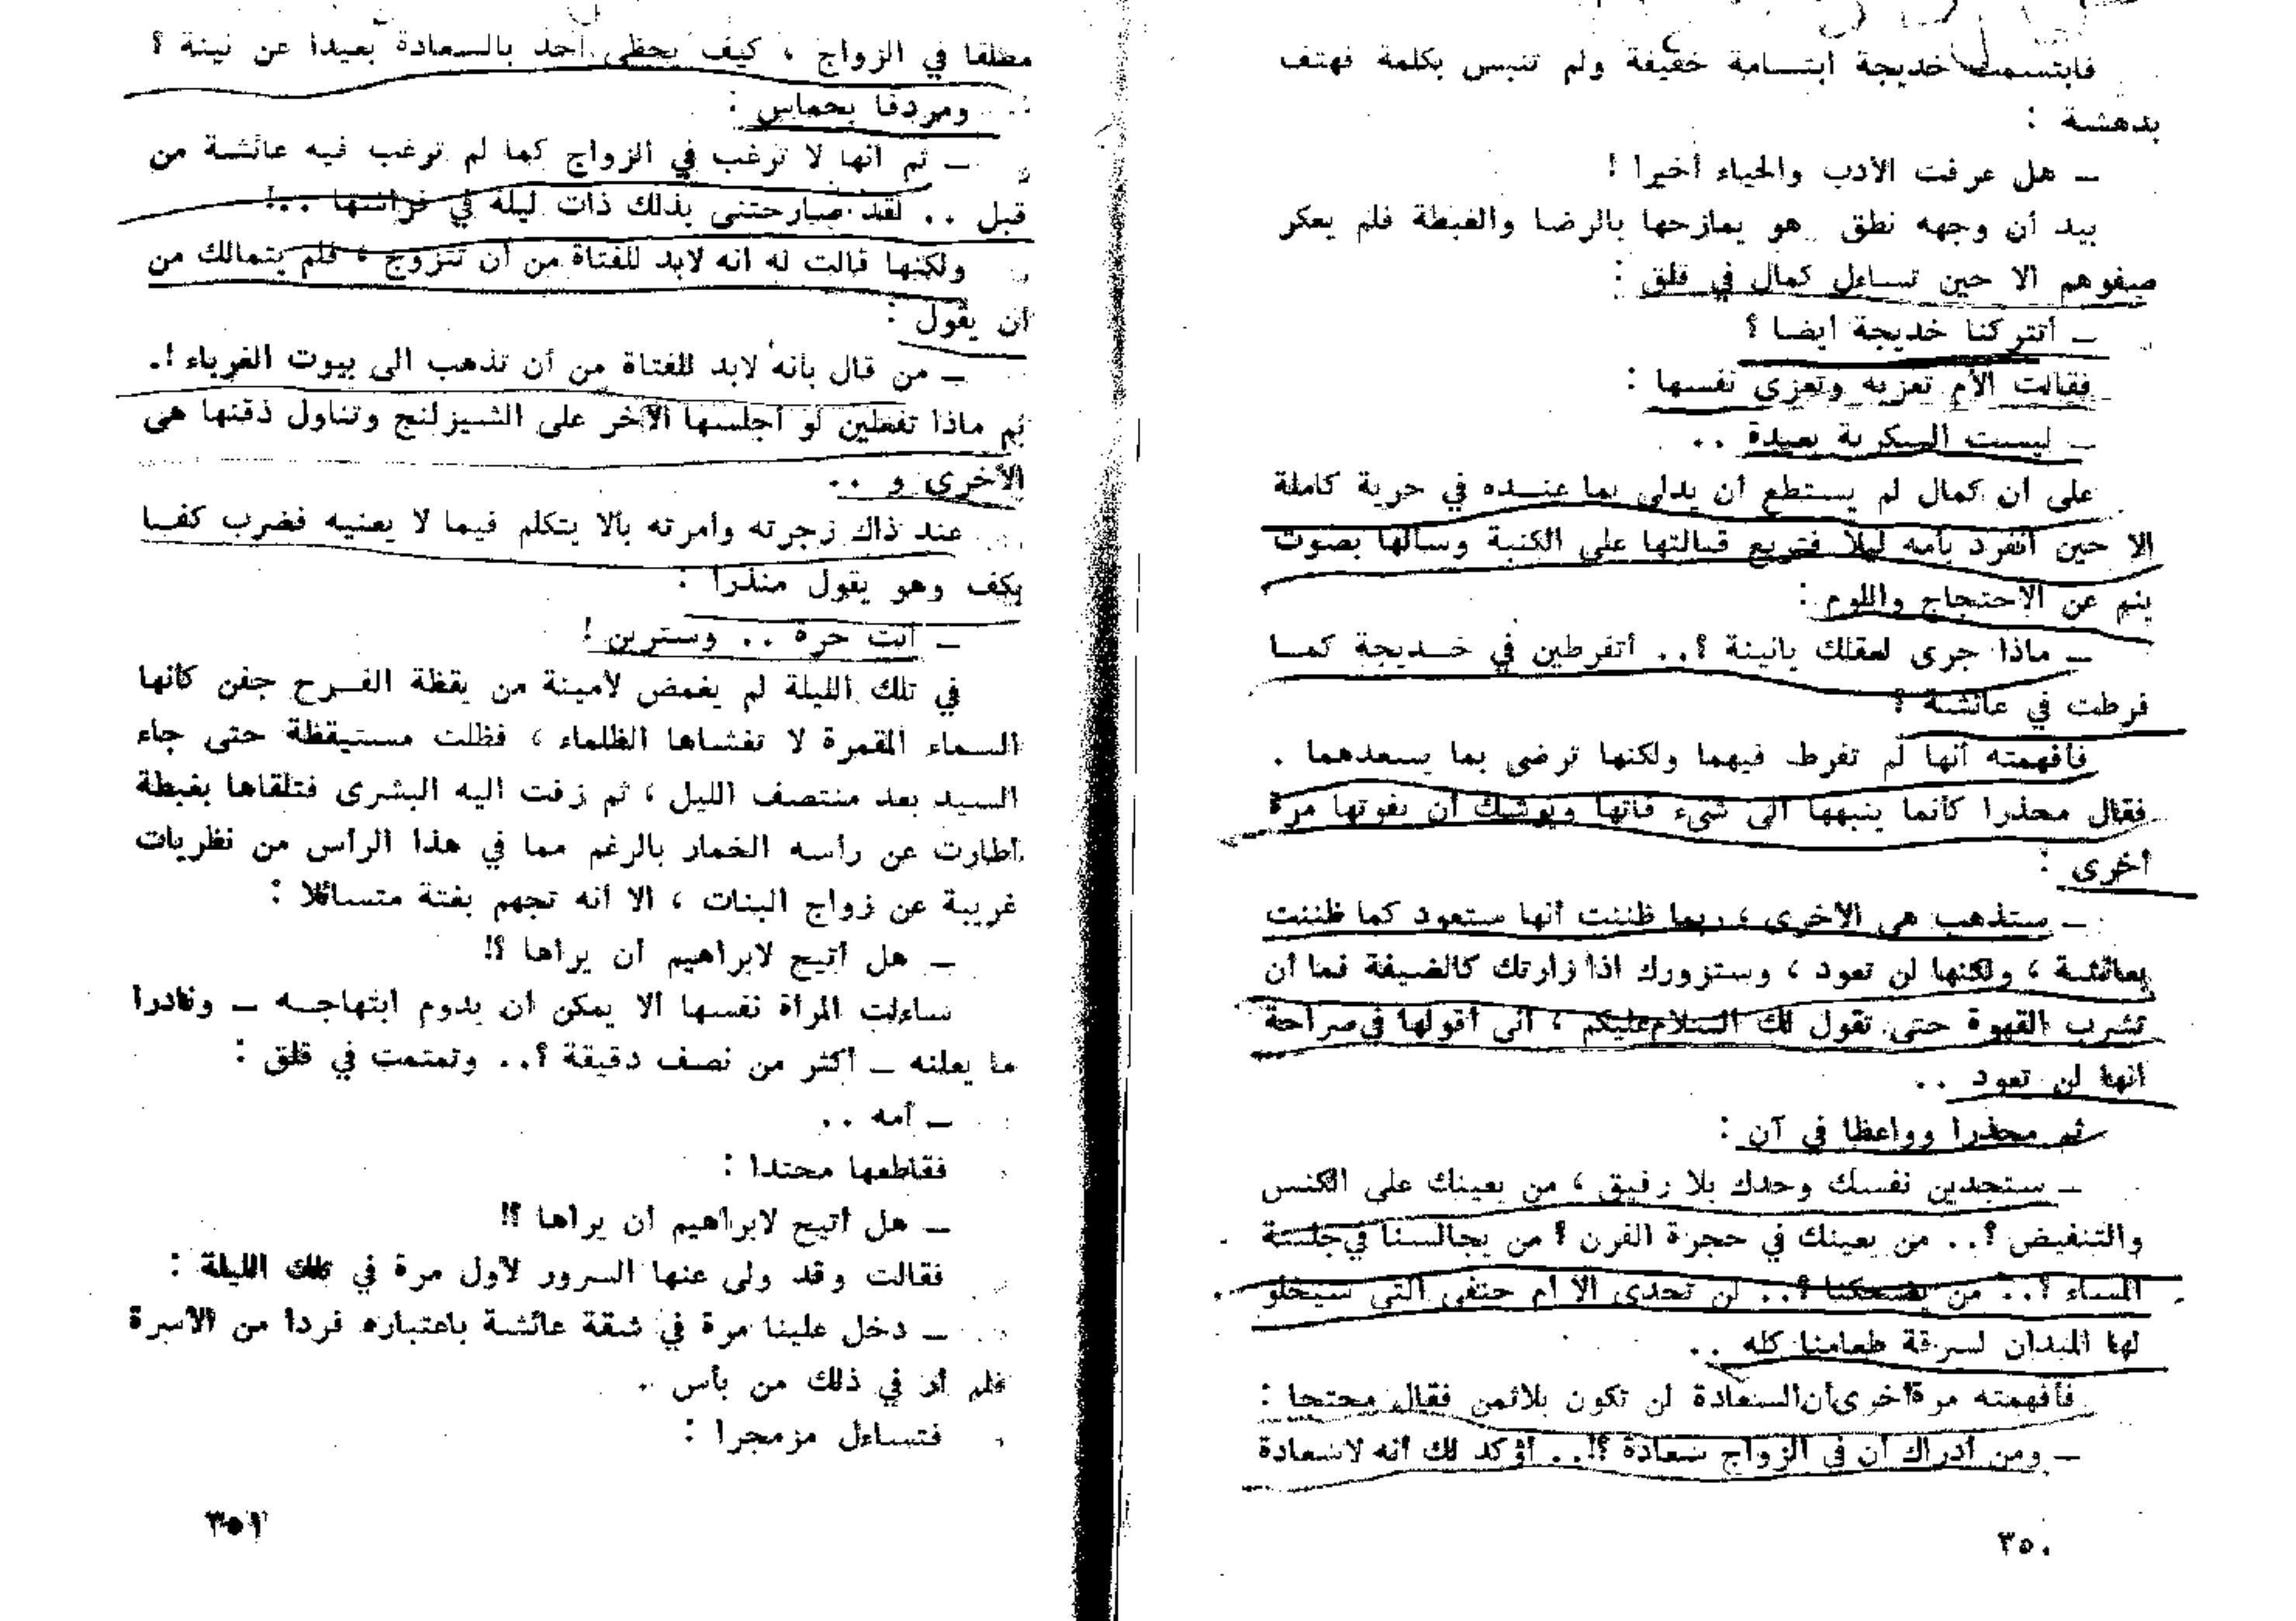 فابتسمت خديجة ابتسامة خفيفة ولم تنبس بكلمة فهتف
بدهشة :
— هل عرفت الأدب والحياء أخيرا !
بيد أن وجهه نطق هو يمازحها بالرضا والغبطة فلم يعكر
صفوهم الا حين تساءل كمال في قلق :
— أتتركنا خديجة أيضا ؟
فقالت الأم تعزيه وتعزى نفسها :
— ليست السكرية بعيدة ..
على أن كمال لم يستطع أن يدلى بما عنده في حرية كاملة
الا حين انفرد بأمه ليلا فتربع قبالتها على الكنبة وسألها بصوت
ينم عن الاحتجاج واللوم :
— ماذا جرى لعقلك يانينة ؟.. أتفرطين في خديجة كما
فرطت في عائشة ؟
فأفهمته أنها لم تفرط فيهما ولكنها ترضى بما يسعدهما .
فقال محذرا كأنما ينبهها الى شيء فاتها ويوشك أن يفوتها مرة
أخرى :
— ستذهب هى الأخرى ، ربما ظننت أنها ستعود كما ظننت
بعائشة ، ولكنها لن تعود ، وستزورك اذا زارتك كالضيفة فما أن
تشرب القهوة حتى تقول لك السلام عليكم ، انى أقولها في صراحة
انها لن تعود ..
ثم محذرا وواعظا في آن :
— ستجدين نفسك وحدك بلا رفيق ، من يعينك على الكنس
والتنفيض ؟.. من يعينك في حجرة الفرن ؟ من يجالسنا في جلسة
المساء ؟.. من يضحكنا ؟.. لن تجدى الا أم حنفى التى سيخلو
لها الميدان لسرقة طعامنا كله ..
فأفهمته مرة أخرى أن السعادة لن تكون بلا ثمن فقال محتجا :
— ومن أدراك أن في الزواج سعادة ؟!.. أؤكد لك أنه لا سعادة
٣٥٠
مطلقا في الزواج ، كيف يحظى أحد بالسعادة بعيدا عن نينة ؟
ومردفا بحماس :
— ثم انها لا ترغب في الزواج كما لم ترغب فيه عائشة من
قبل .. لقد صارحتنى بذلك ذات ليلة في فراشها ..!
ولكنها قالت له انه لابد للفتاة من أن تتزوج ، فلم يتمالك من
أن يقول :
— من قال بأنه لابد للفتاة من أن تذهب الى بيوت الغرباء !.
ثم ماذا تفعلين لو أجلسها الآخر على الشيزلنج وتناول ذقنها هى
الأخرى و ..
عند ذاك زجرته وأمرته بألا يتكلم فيما لا يعنيه فضرب كفا
بكف وهو يقول منذرا :
— أنت حرة .. وسترين !
في تلك الليلة لم يغمض لأمينة من يقظة الفرح جفن كأنها
السماء المقمرة لا تغشاها الظلماء ، فظلت مستيقظة حتى جاء
السيد بعد منتصف الليل ، ثم زفت اليه البشرى فتلقاها بغبطة
أطارت عن رأسه الخمار بالرغم مما في هذا الرأس من نظريات
غريبة عن زواج البنات ، الا أنه تجهم بغتة متسائلا :
— هل أتيح لابراهيم أن يراها ؟!
ساءلت المرأة نفسها ألا يمكن أن يدوم ابتهاجه — ونادرا
ما يعلنه — أكثر من نصف دقيقة ؟.. وتمتمت في قلق :
— أمه ..
فقاطعها محتدا :
— هل أتيح لابراهيم أن يراها ؟!
فقالت وقد ولى عنها السرور لأول مرة في تلك الليلة :
— دخل علينا مرة في شقة عائشة باعتباره فردا من الأسرة
فلم أر في ذلك من بأس .
فتساءل مزمجرا :
٣٥١